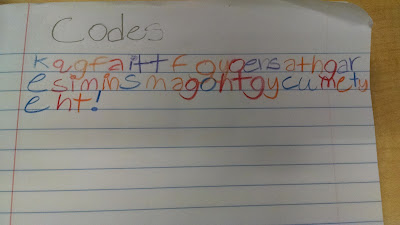 Codes
kqgfaittfoyoersathgar
esiminsmagohtgycumety
eht!